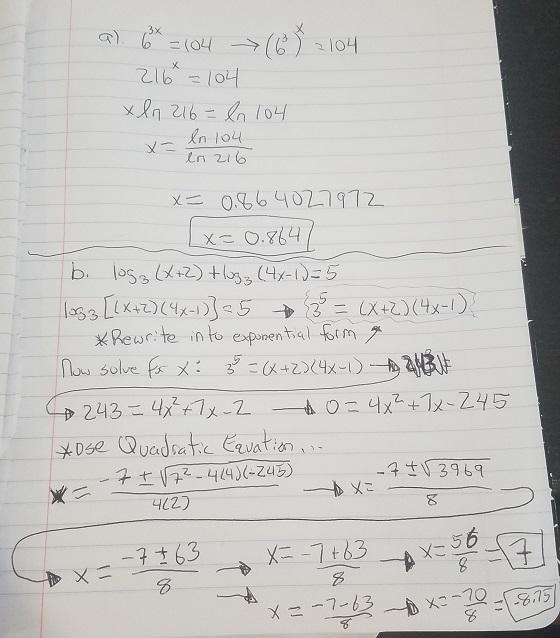 a) 6^3x = 104 → (6^3)^x = 104
216^x = 104
x ln 216 = ln 104
x = ln 104 / ln 216
x = 0.864027972
x = 0.864
b. log₃(x+2) + log₃(4x-1) = 5
log₃[(x+2)(4x-1)] = 5 → 3^5 = (x+2)(4x-1)
*Rewrite into exponential form ↗
Now solve for x: 3^5 = (x+2)(4x-1) →
→ 243 = 4x² + 7x - 2 → 0 = 4x² + 7x - 245
*Use Quadratic Equation...
x = -7 ± √7² - 4(4)(-245) / 4(2) → x = -7 ± √3969 / 8
→ x = -7 ± 63 / 8 → x = -7 + 63 / 8 → x = 56 / 8 = 7
→ x = -7 - 63 / 8 → x = -70 / 8 = -8.75